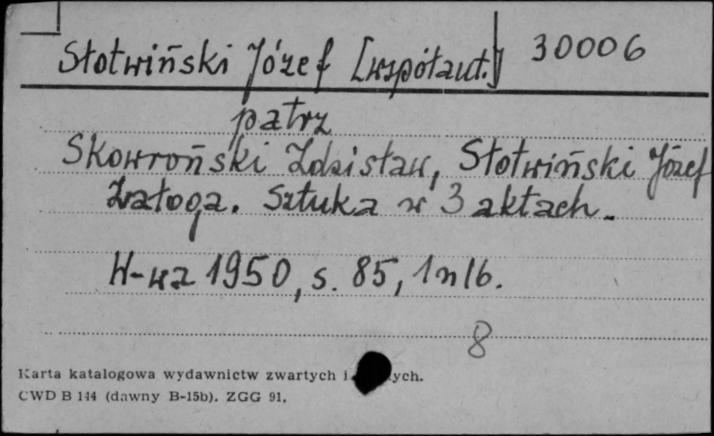 Słotwiński Józef [współaut.] 30006
patrz
Skowroński Zdzisław, Słotwiński Józef
Załoga. Sztuka w 3 aktach.
W-wa 1950, s. 85, 1 nlb.
8
Karta katalogowa wydawnictw zwartych i ych.
CWD B 144 (dawny B-15b). ZGG 91.